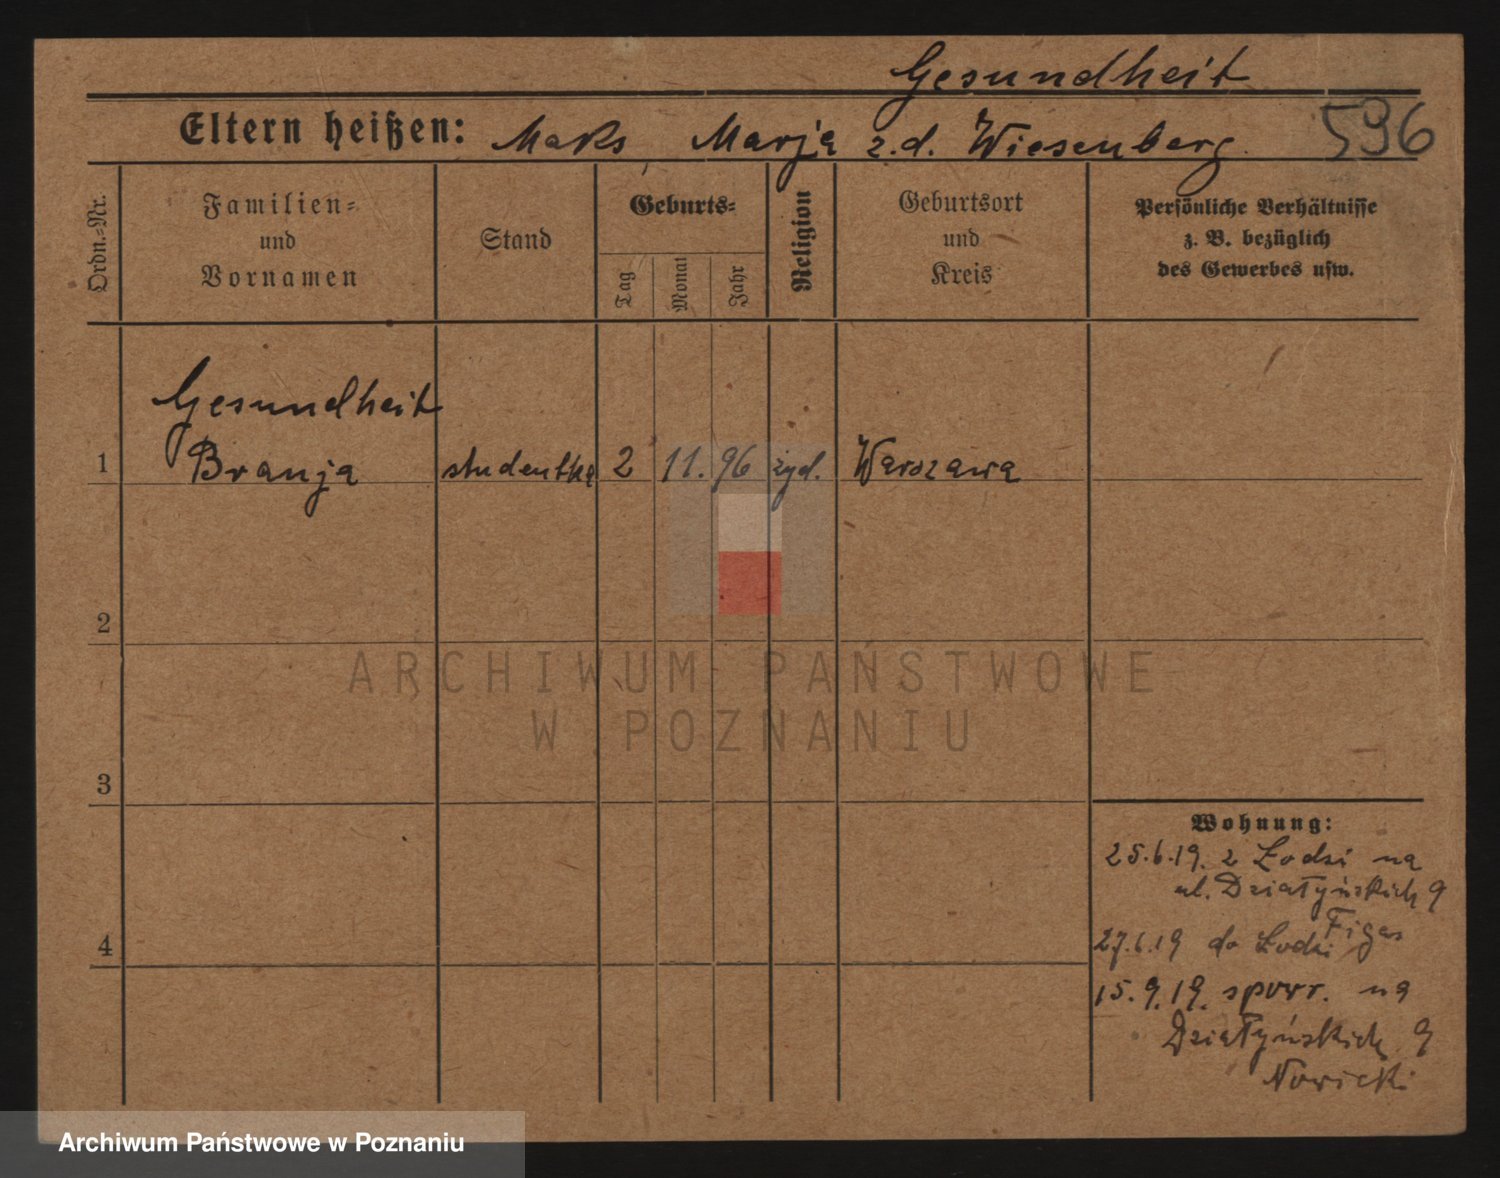 Gesundheit
Eltern heißen: Maks Marja z.d. Wiesenberg.
596
Ordn.=Nr.
Familien=
und
Vornamen
Stand
Geburts=
Tag
Monat
Jahr
Religion
Geburtsort
und
Kreis
Persönliche Verhältnisse
z. B. bezüglich
des Gewerbes usw.
Gesundheit
1 Branja studentka 2 11. 96 żyd. Warszawa
2
3
4
Wohnung:
25.6.19. z Łodzi na
ul. Działyńskich 9
Figas
27.6.19 do Łodzi
15.9.19. spowr. na
Działyńskich 9
Nowicki
ARCHIWUM PAŃSTWOWE
W POZNANIU
Archiwum Państwowe w Poznaniu